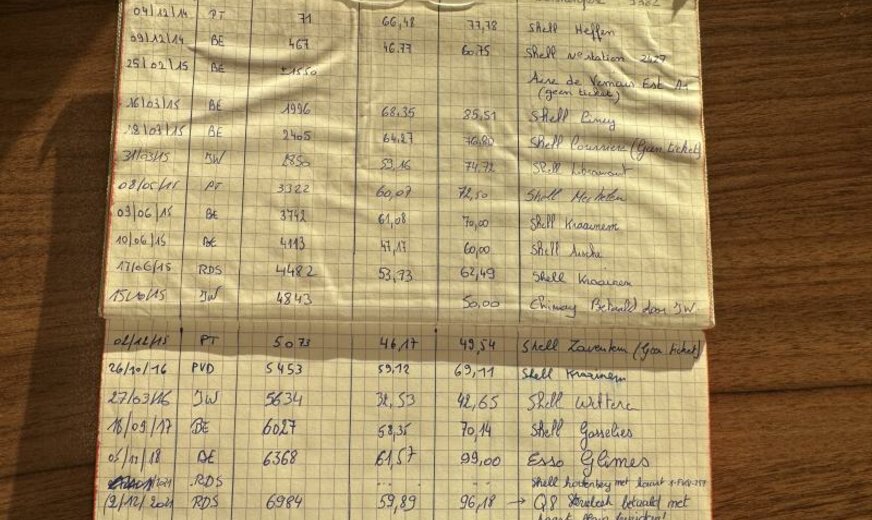 3382
04/12/14 PT 71 66,48 77,78 Shell Heffen
09/12/14 BE 467 46.77 60.75 Shell N° station 2427
25/02/15 BE ±1550 Aire de Vemars Est A1
(geen ticket)
16/03/15 BE 1996 68.35 85,51 Shell Ciney
18/03/15 BE 2405 64.27 76.80 Shell Courriere (Geen ticket)
31/03/15 JW 2850 59,16 74,72 Shell Libramont
08/05/15 PT 3322 60,07 72,50 Shell Mechelen
09/06/15 BE 3742 61,08 70,00 Shell Kraainem
10/06/15 BE 4113 47,17 60,00 Shell Assche
17/06/15 RDS 4482 53,73 62,49 Shell Kraainem
15/10/15 JW 4843 50,00 Chimay Betaald door JW
02/12/15 PT 5073 46,17 49,54 Shell Zaventem (Geen ticket)
26/10/16 PVD 5453 59,12 69,11 Shell Kraainem
27/03/16 JW 5634 32,53 42,65 Shell Wetteren
18/09/17 BE 6027 58,35 70,14 Shell Gosselies
05/11/18 BE 6368 61,57 99,00 Esso Glimes
RDS Shell met kaart
12/12/2021 RDS 6984 59,89 96,18 → Q8 betaald met
kaart